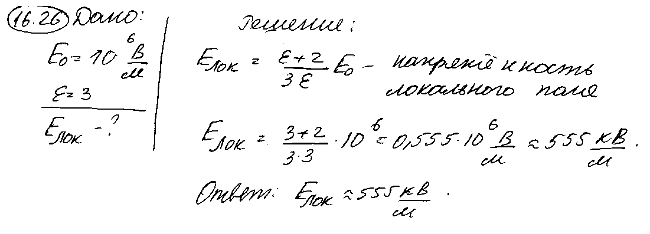 16.26 Дано:
E₀ = 10⁶ В/м
ε = 3
Eлок - ?
Решение:
Eлок = (ε+2)/(3ε) E₀ - напряжённость
локального поля
Eлок = (3+2)/(3·3) · 10⁶ = 0,555·10⁶ В/м ≈ 555 кВ/м.
Ответ: Eлок ≈ 555 кВ/м.